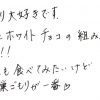 り大好きです。
ホワイトチョコの組み
!!
も食べてみたいけど
巣ごもりが一番